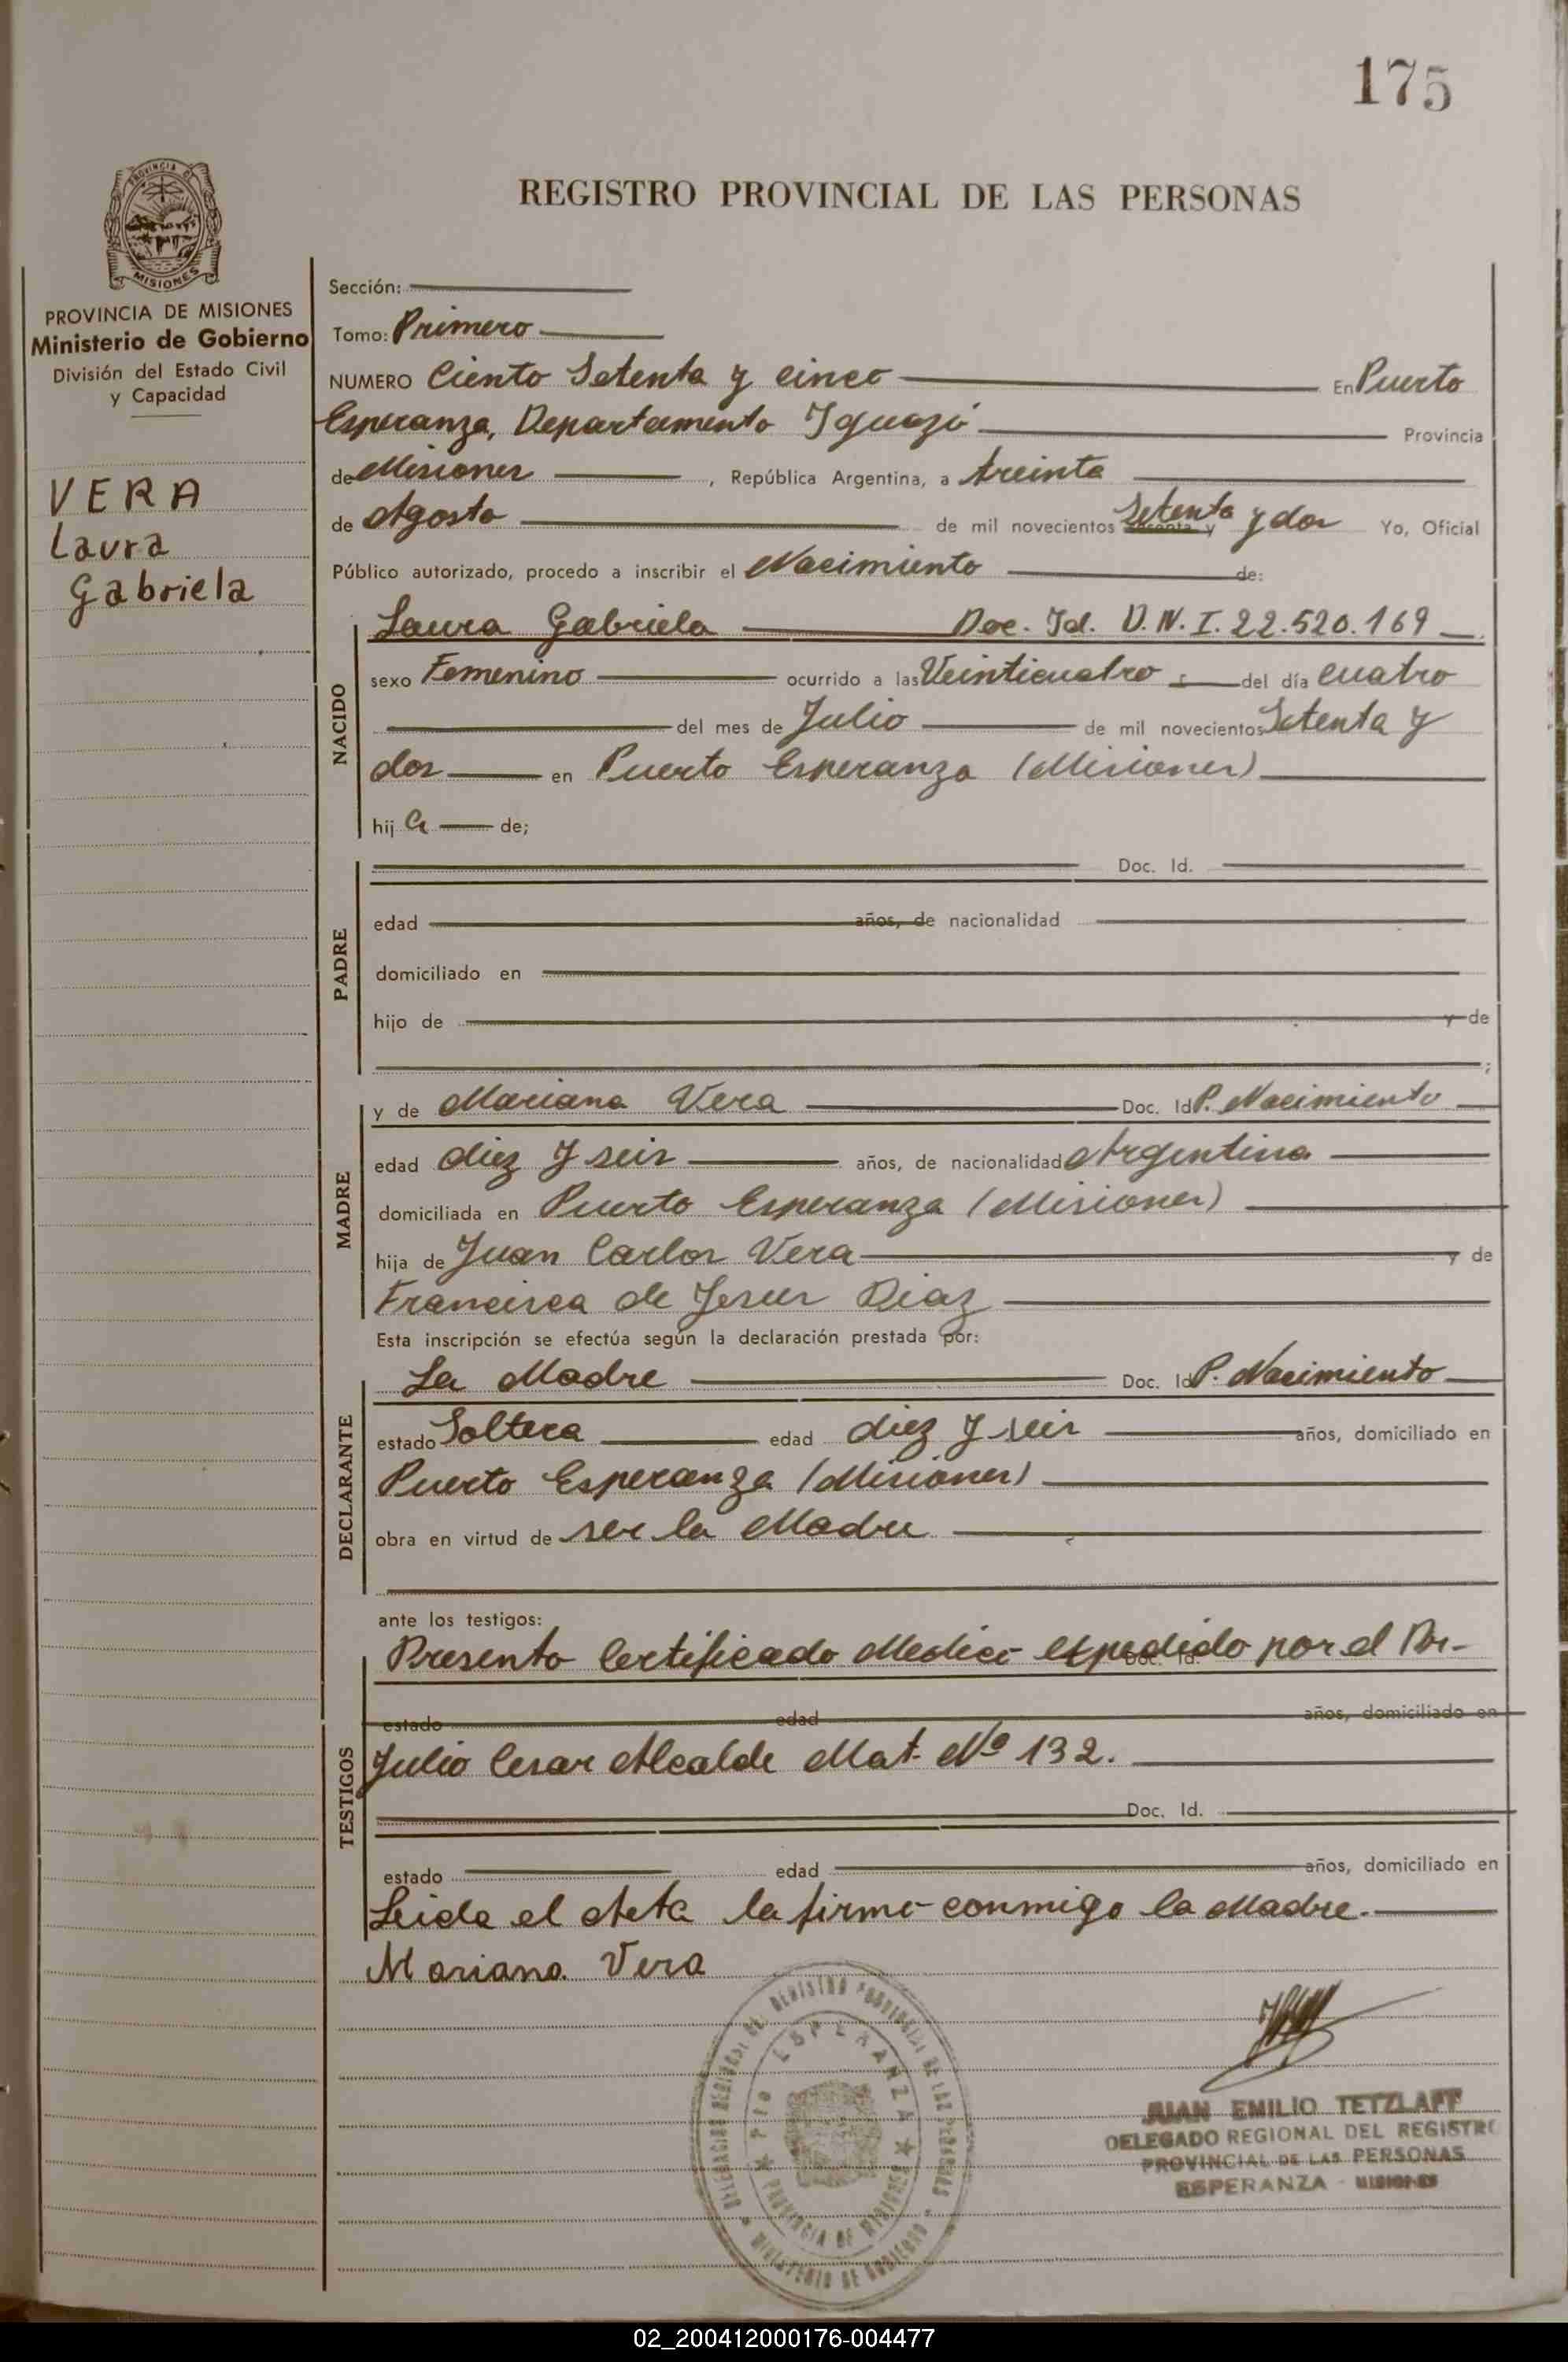 175
PROVINCIA DE
MISIONES
REGISTRO PROVINCIAL DE LAS PERSONAS
PROVINCIA DE MISIONES
Ministerio de Gobierno
División del Estado Civil
y Capacidad
VERA
Laura
Gabriela
Sección:
Tomo: Primero
NUMERO Ciento Setenta y cinco En Puerto
Esperanza, Departamento Iguazú Provincia
de Misiones , República Argentina, a treinta
de Agosto de mil novecientos Setenta y dos Yo, Oficial
Público autorizado, procedo a inscribir el Nacimiento de:
NACIDO
Laura Gabriela Doc. Id. D.N.I. 22.520.169
sexo Femenino ocurrido a las Veinticuatro del día cuatro
del mes de Julio de mil novecientos Setenta y
dos en Puerto Esperanza (Misiones)
hij a de;
PADRE
Doc. Id.
edad años, de nacionalidad
domiciliado en
hijo de y de
;
MADRE
y de Mariana Vera Doc. Id P. Nacimiento
edad diez y seis años, de nacionalidad Argentina
domiciliada en Puerto Esperanza (Misiones)
hija de Juan Carlos Vera y de
Francisca de Jesus Diaz
Esta inscripción se efectúa según la declaración prestada por:
DECLARANTE
La Madre Doc. Id P. Nacimiento
estado Soltera edad diez y seis años, domiciliado en
Puerto Esperanza (Misiones)
obra en virtud de ser la Madre
ante los testigos:
TESTIGOS
Presento Certificado Medico expedido por el Doc. Id.
estado edad años, domiciliado en
Julio Cesar Alcalde Mat. Nº 132.
Doc. Id.
estado edad años, domiciliado en
Leida el Acta la firma conmigo la Madre.
Mariana Vera
DELEGACION REGIONAL DEL REGISTRO PROVINCIAL DE LAS PERSONAS
Pto ESPERANZA
PROVINCIA DE MISIONES
MINISTERIO DE GOBIERNO
JUAN EMILIO TETZLAFF
DELEGADO REGIONAL DEL REGISTRO
PROVINCIAL DE LAS PERSONAS
ESPERANZA - MISIONES
02_200412000176-004477